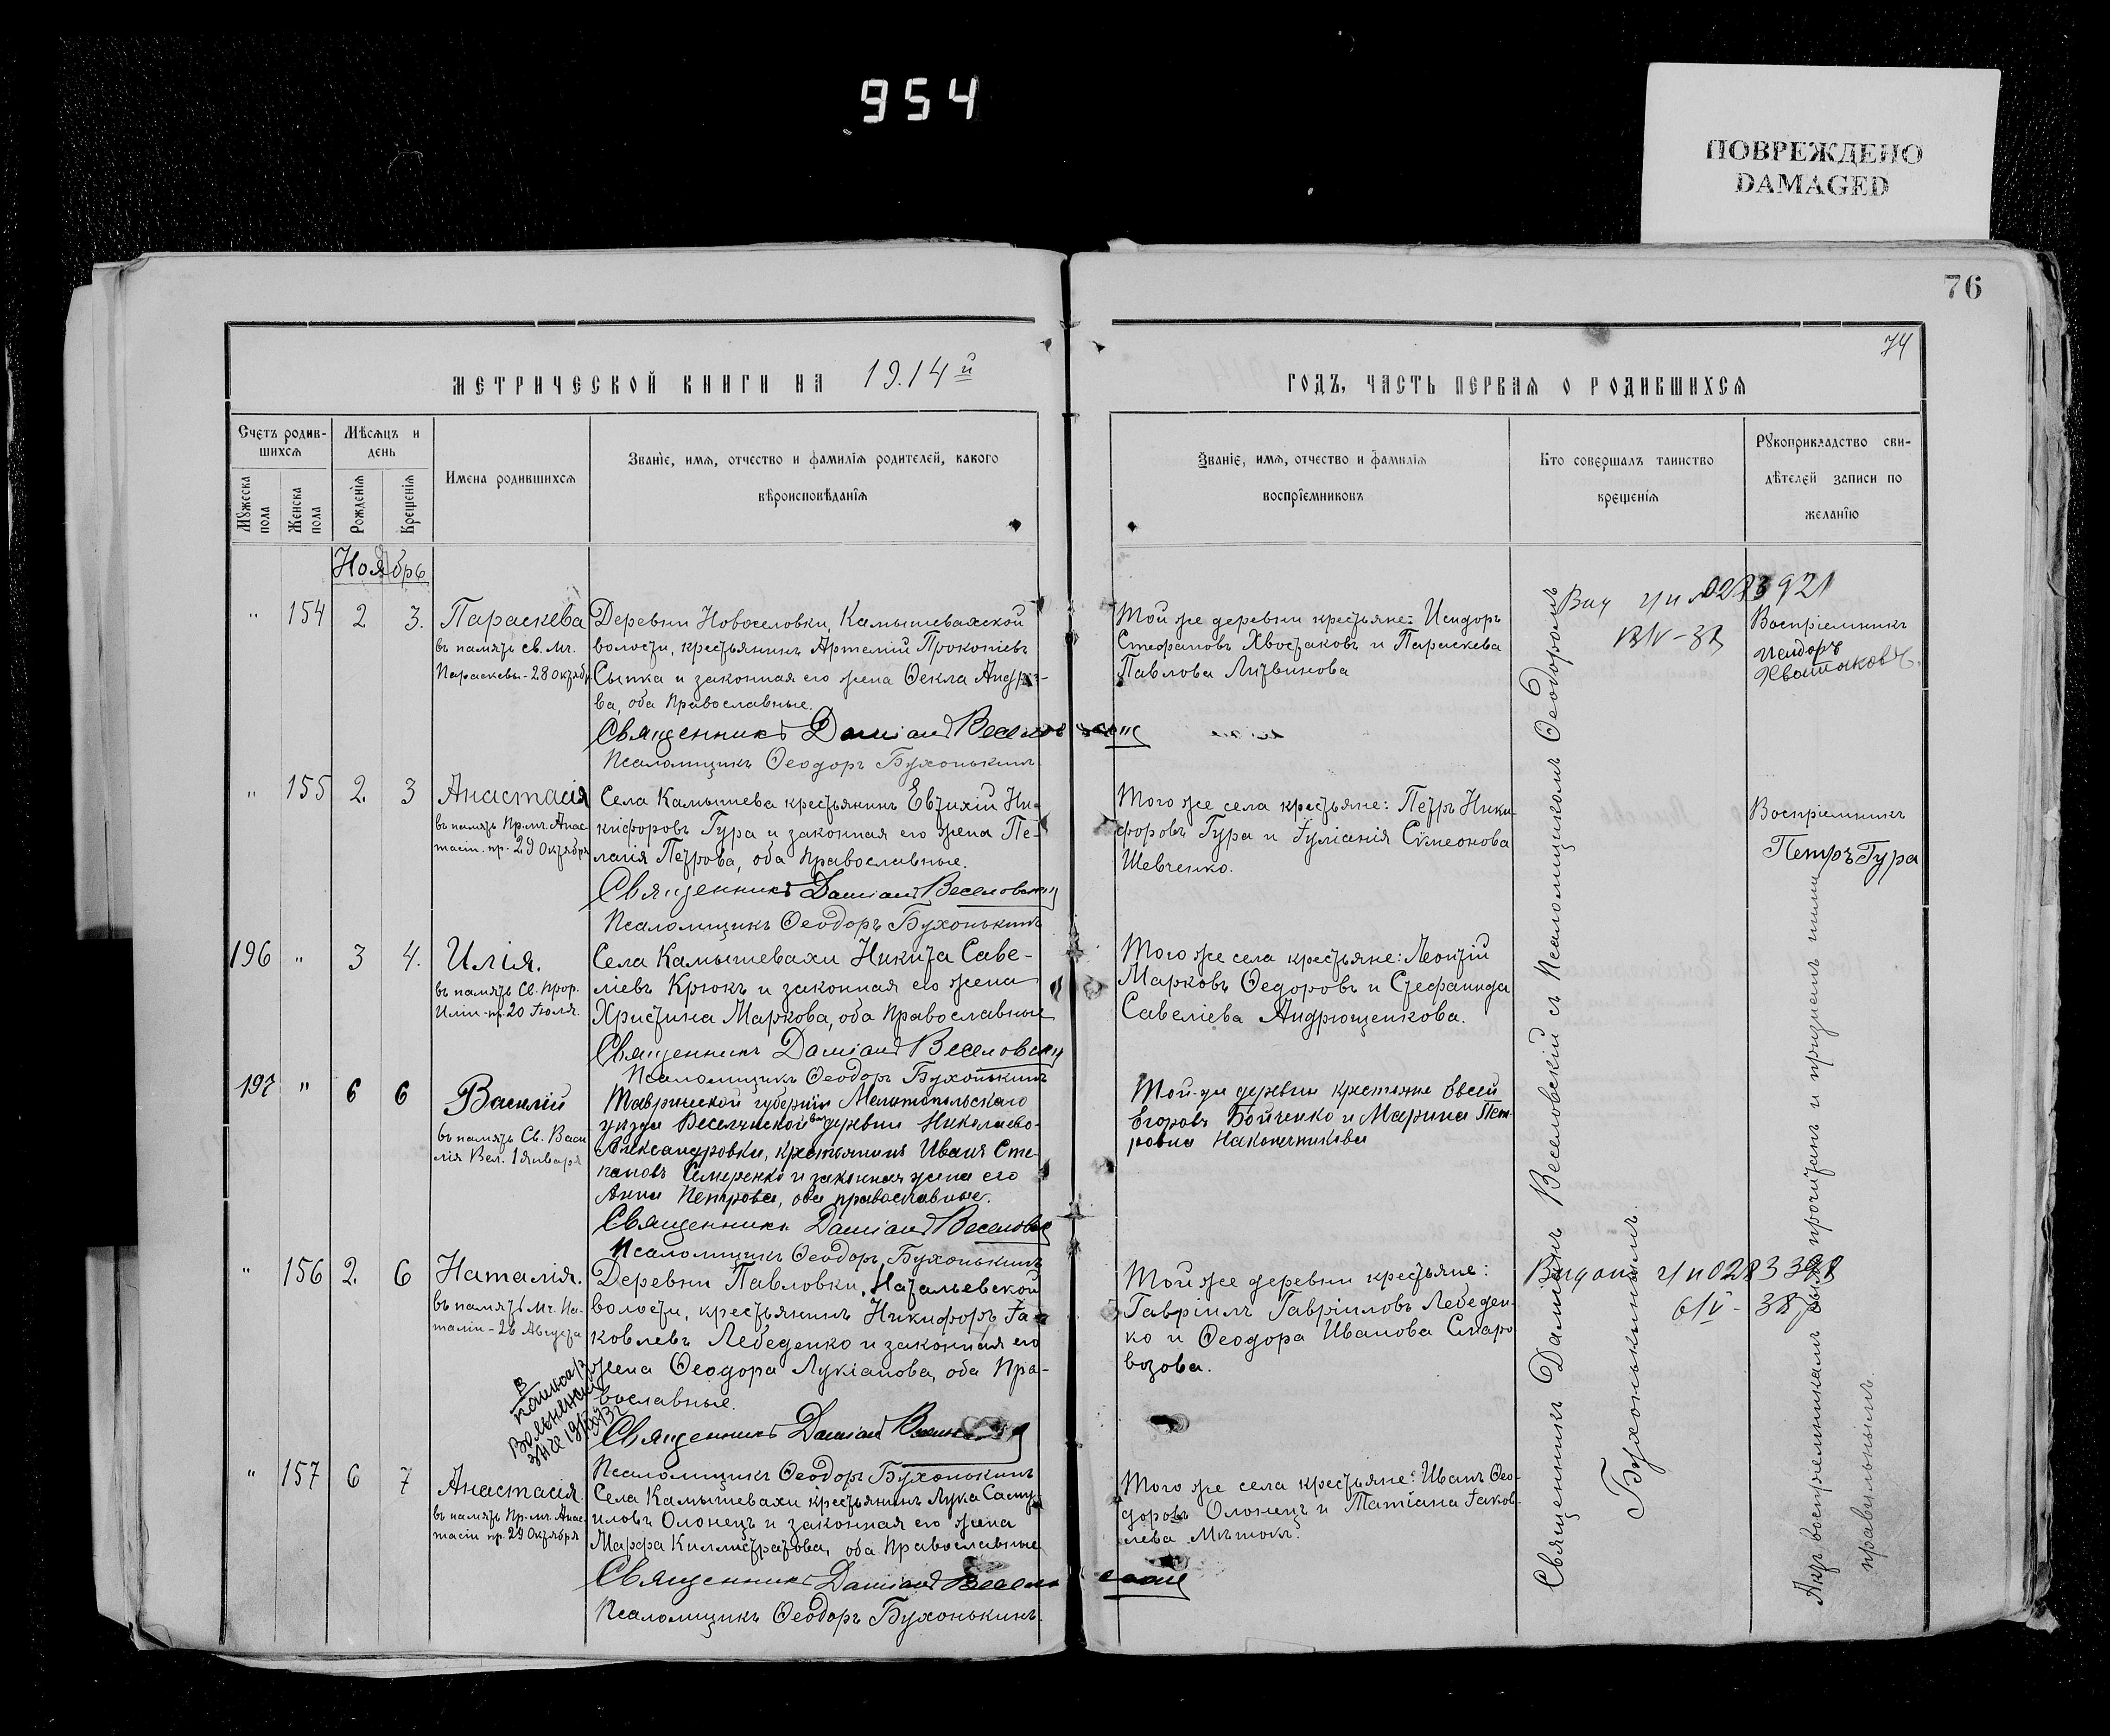 954
ПОВРЕЖДЕНО
DAMAGED
76
74
МЕТРИЧЕСКОЙ КНИГИ НА 1914й
ГОДЪ, ЧАСТЬ ПЕРВАЯ О РОДИВШИХСЯ
Счетъ родив-
шихся
Мужеска пола
Женска пола
Мѣсяцъ и
день
Рожденія
Крещенія
Имена родившихся
Званіе, имя, отчество и фамилія родителей, какого
вѣроисповѣданія
Званіе, имя, отчество и фамилія
воспріемниковъ
Кто совершалъ таинство
крещенія
Рукоприкладство сви-
дѣтелей записи по
желанію
Ноябрь
" 154 2 3. Параскева
въ память св. мч.
Параскевы - 28 октябр.
Деревни Новоселовки, Камышевахской
волости, крестьянинъ Артемій Прокопіевъ
Сыпка и законная его жена Ѳекла Андрее-
ва, оба православные.
Священникъ Даміанъ Веселовскій
Псаломщикъ Ѳеодоръ Бухонькинъ
Той же деревни крестьяне: Исидоръ
Стефановъ Хвостаковъ и Параскева
Павлова Литвинова
Воспріемникъ
Исидоръ
" 155 2. 3 Анастасія
въ память Пр. мч. Анас-
тасіи. пр. 29 Октября
Села Камышева крестьянинъ Евтихій Ни-
кифоровъ Гура и законная его жена Пе-
лагія Петрова, оба православные.
Священникъ Даміанъ Веселовскій
Псаломщикъ Ѳеодоръ Бухонькинъ
Того же села крестьяне: Петръ Ники-
форовъ Гура и Іуліанія Сѵмеонова
Шевченко.
Воспріемникъ
Петръ Гура
196 " 3 4. Илія.
въ память Св. прор.
Иліи - пр. 20 Іюля.
Села Камышевахи Никита Саве-
ліевъ Крюкъ и законная его жена
Христина Маркова, оба православные
Священникъ Даміанъ Веселовскій
Псаломщикъ Ѳеодоръ Бухонькинъ
Того же села крестьяне: Леонтій
Марковъ Ѳедоровъ и Стефанида
Савеліева Андрющенкова.
197 " 6 6 Василій
въ память Св. Васи-
лія Вел. 1 января
Таврической губерніи Мелитопольскаго
уѣзда Веселянской вол деревни Николаево-
Александровки, крестьянинъ Иванъ Сте-
пановъ Семеренко и законная жена его
Анна Петрова, оба православные.
Священникъ Даміанъ Веселовскій
Псаломщикъ Ѳеодоръ Бухонькинъ
Той-же деревни крестьяне Евсей
Егоровъ Бойченко и Марина Пет-
ровна Наконечникова
" 156 2. 6 Наталія.
въ память Мч. На-
таліи - 26 Августа
Деревни Павловки, Натальевской
волости, крестьянинъ Никифоръ Іа-
ковлевъ Лебеденко и законная его
жена Ѳеодора Лукіанова, оба пра-
вославные.
Священникъ Даміанъ
Псаломщикъ Ѳеодоръ Бухонькинъ
Той же деревни крестьяне:
Гавріилъ Гавріиловъ Лебеден-
ко и Ѳеодора Иванова Старо
возова.
" 157 6 7 Анастасія.
въ память Пр. мч. Анас-
тасіи пр. 29 Октября
Села Камышевахи крестьянинъ Лука Саму-
иловъ Олонецъ и законная его жена
Марфа Каллистратова, оба православные
Священникъ Даміанъ Веселовскій
Псаломщикъ Ѳеодоръ Бухонькинъ.
Того же села крестьяне: Иванъ Ѳео-
доровъ Олонецъ и Татіана Іаков-
лева Мѣшокъ.
Священникъ Даміанъ Веселовскій съ Псаломщикомъ Ѳеодоромъ
Бухонькинымъ.
Актъ воспріемникамъ былъ прочитанъ и признанъ ими
правильнымъ.